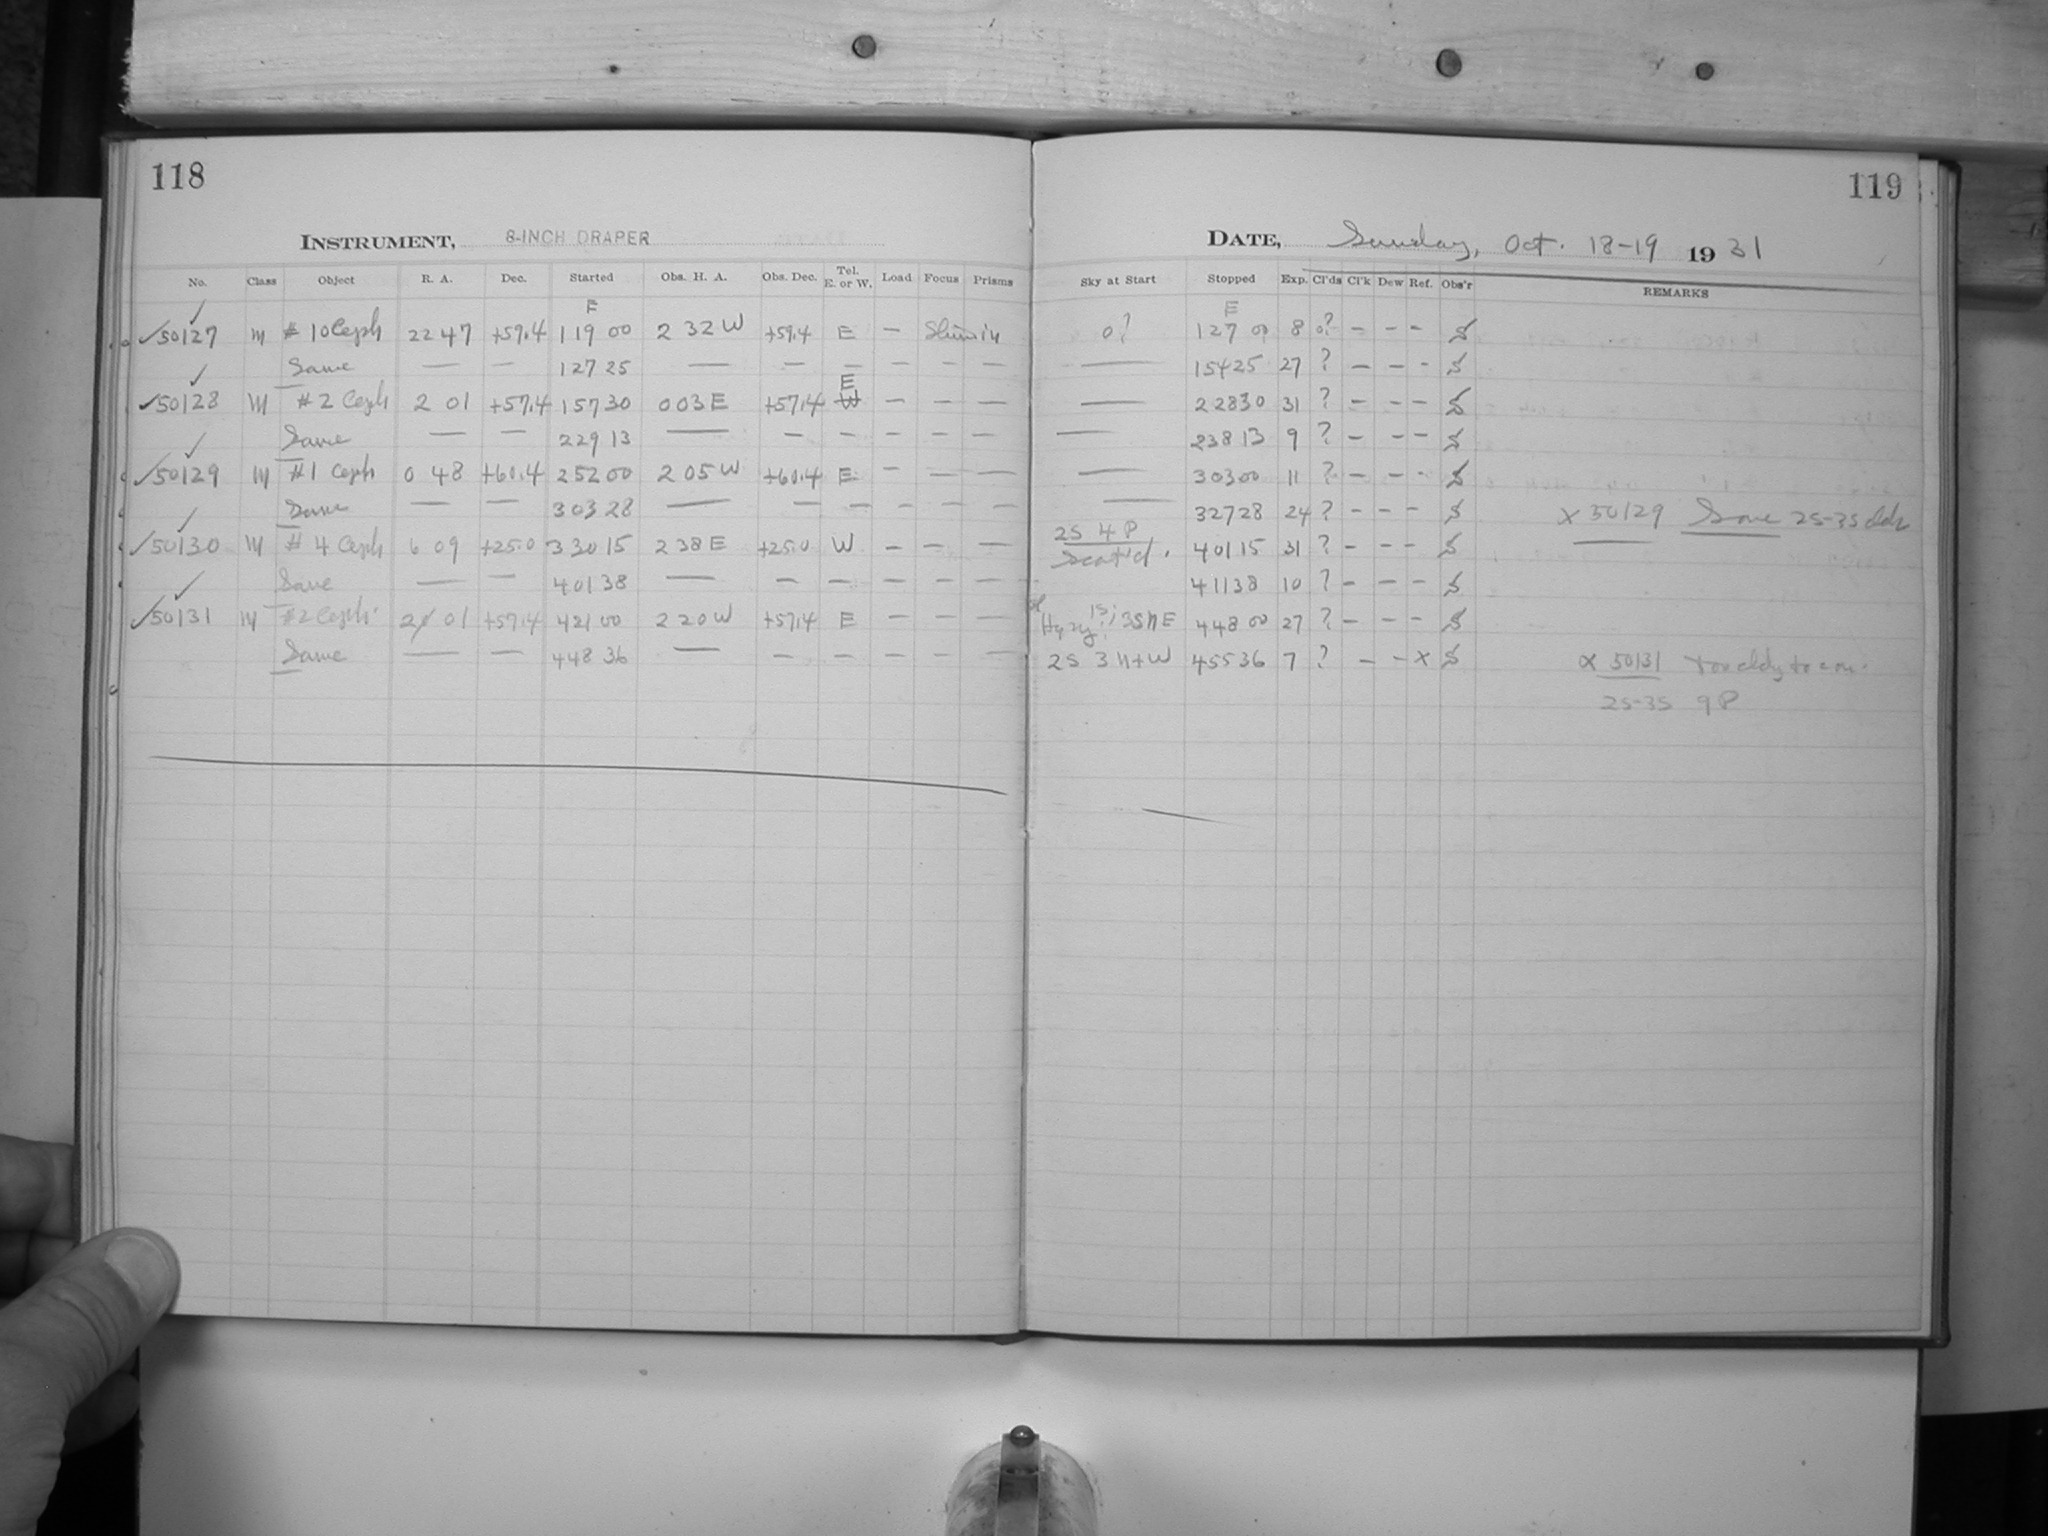 118
INSTRUMENT, 8-INCH DRAPER
No. Class Object R. A. Dec. Started Obs. H. A. Obs. Dec. Tel. E. or W. Load Focus Prisms
E
✓50127 M # 10 Ceph 22 47 +59.4 119 00 2 32 W +59.4 E — Shim in
Same — — 127 25 — — — — — —
✓50128 M #2 Ceph 2 01 +57.4 157 30 0 03 E +57.4 E W — — —
Same — — 229 13 — — — — — —
✓50129 M #1 Ceph 0 48 +60.4 252 00 2 05 W +60.4 E — — —
Same — — 303 28 — — — — — —
✓50130 M # 4 Ceph 6 09 +25.0 330 15 2 38 E +25.0 W — — —
Same — — 401 38 — — — — — —
✓50131 M #2 Ceph. 2 01 +57.4 421 00 2 20 W +57.4 E — — —
Same — — 448 36 — — — — — —
119
DATE, Sunday, Oct. 18-19 1931
Sky at Start Stopped Exp. Cl'ds Cl'k Dew Ref. Obs'r REMARKS
E
0? 127 00 8 0? — — — S
— 154 25 27 ? — — — S
— 228 30 31 ? — — — S
— 238 13 9 ? — — — S
— 303 00 11 ? — — — S
— 327 28 24 ? — — — S x 50129 Same 2S-3S
2S 4 P
Scat'd. 401 15 31 ? — — — S
411 38 10 ? — — — S
Hazy 1S; 3S N E 448 00 27 ? — — — S
2S 3 N+W 455 36 7 ? — — x S x 50131
2S-3S 9 P